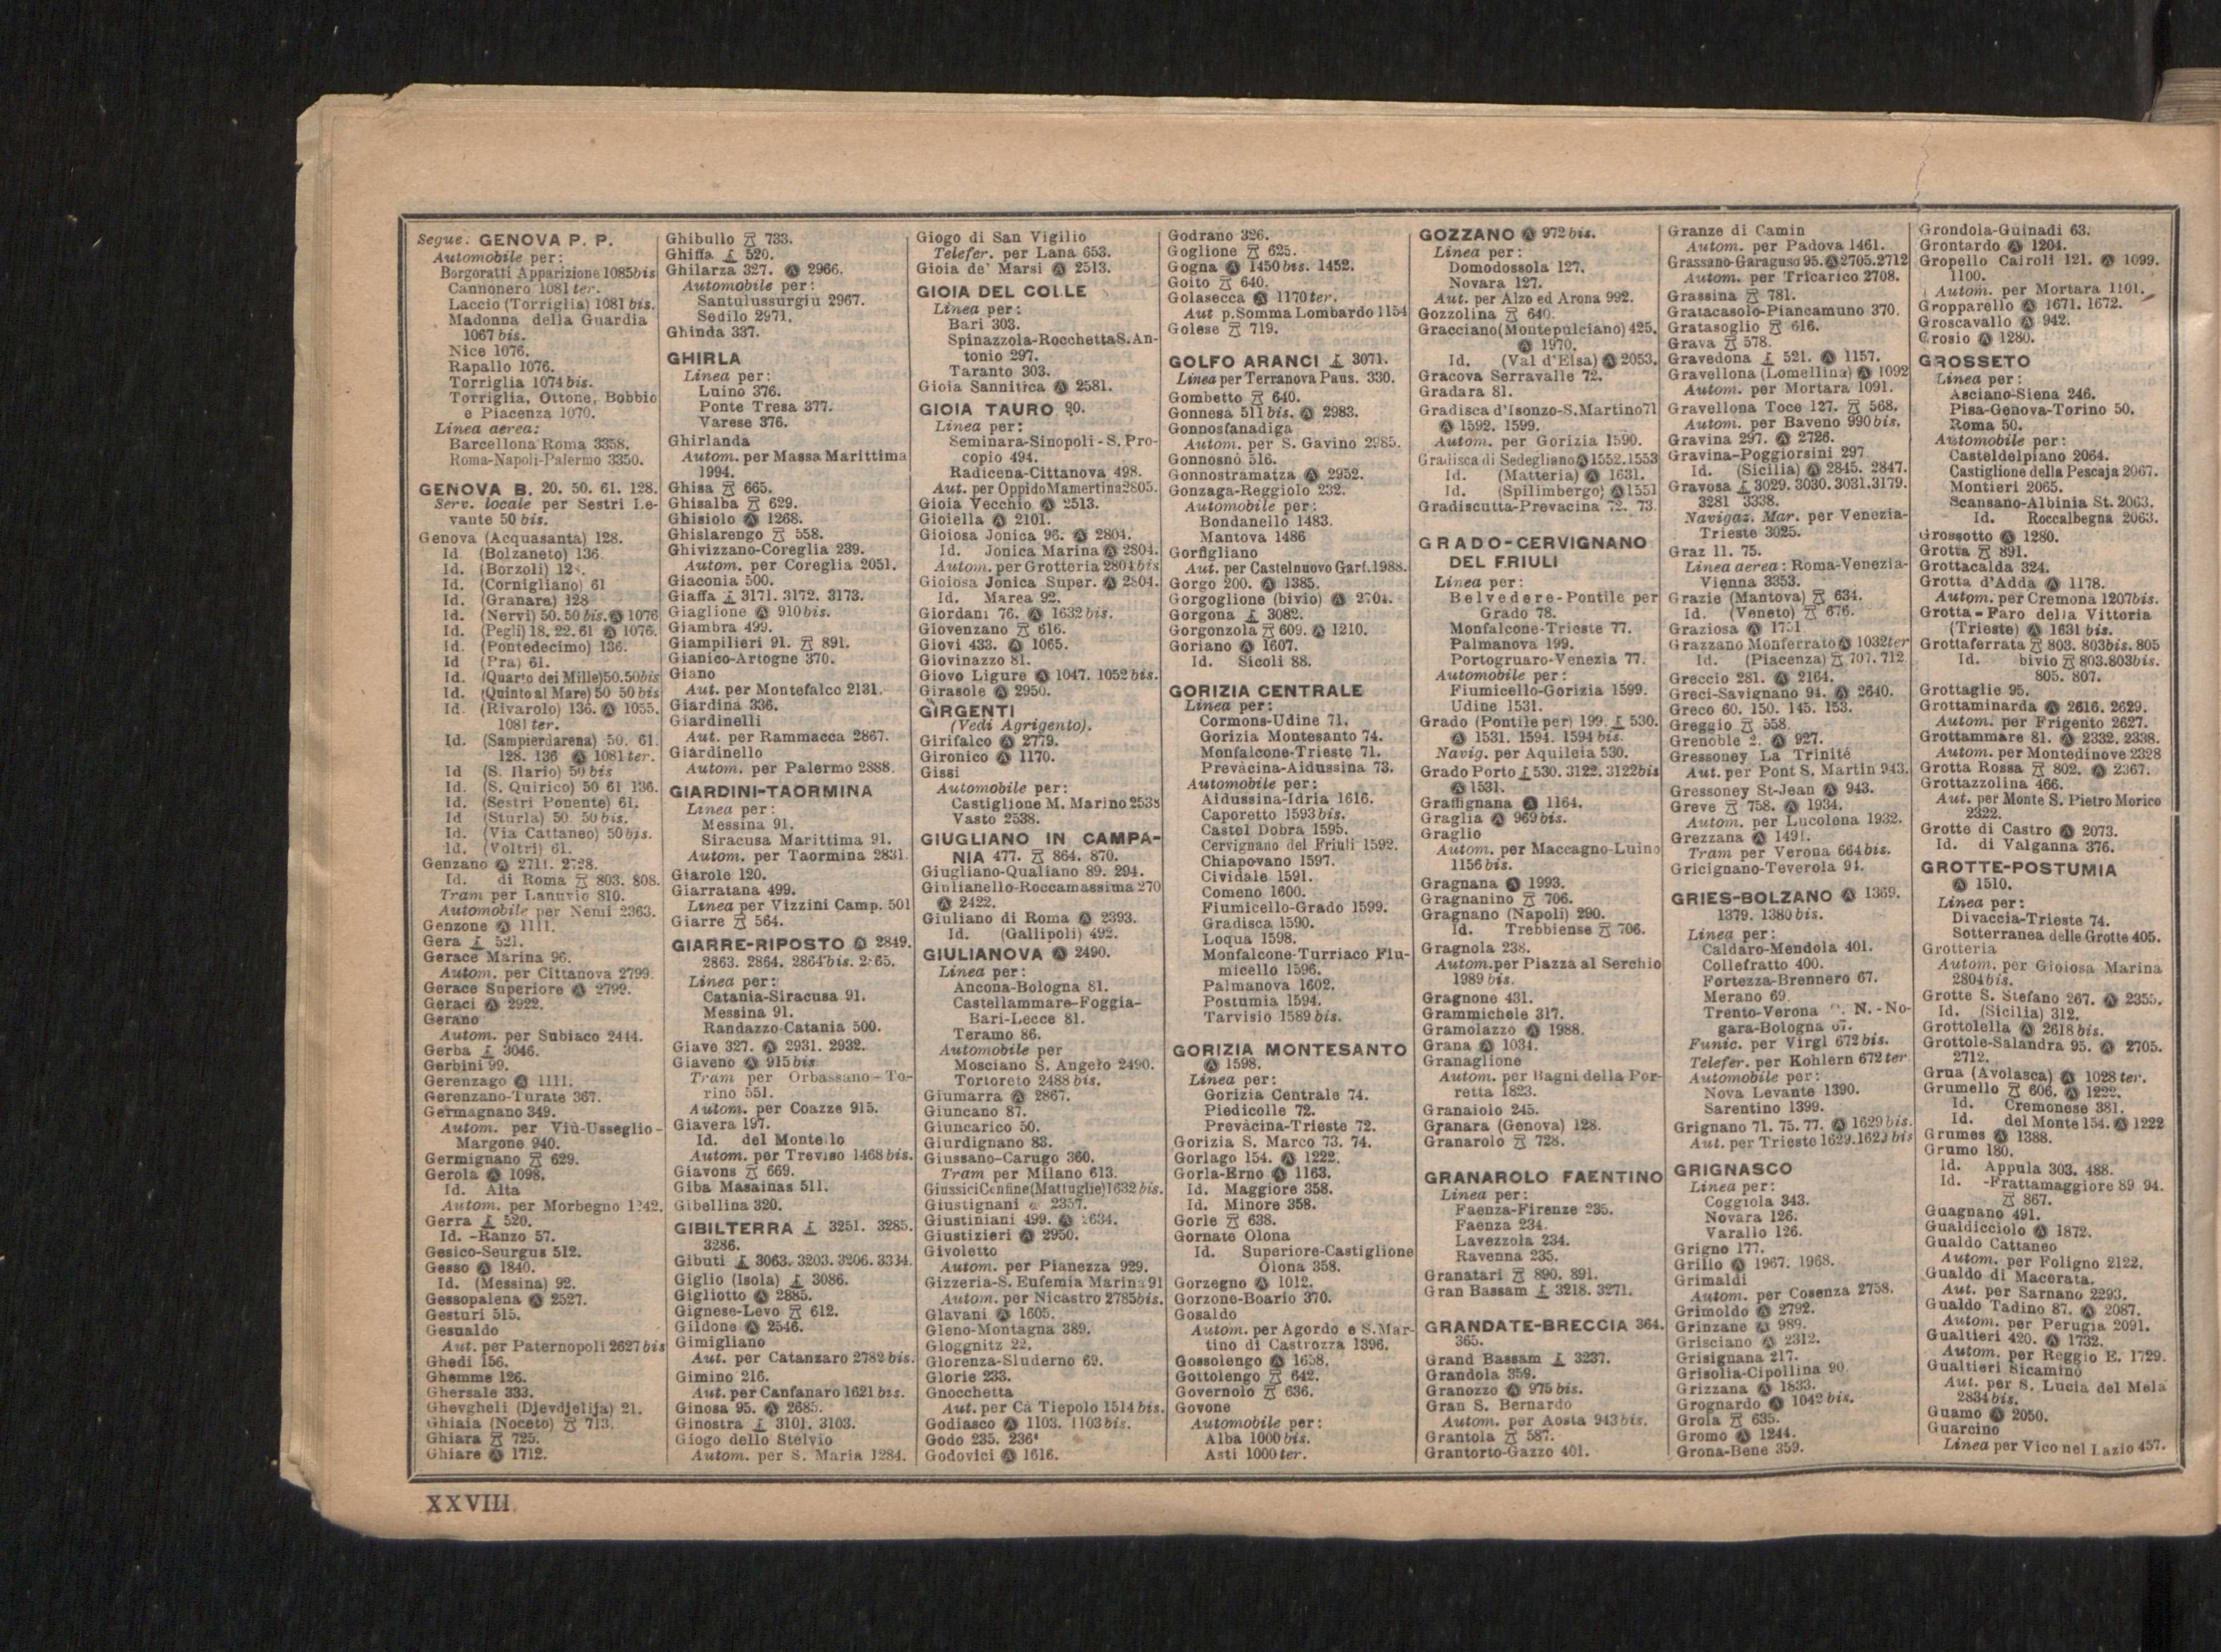 Segue: GENOVA P. P.
Automobile per:
Borgoratti Apparizione 1085bis
Cannonero 1081 ter.
Laccio (Torriglia) 1081 bis.
Madonna della Guardia
1067 bis.
Nice 1076.
Rapallo 1076.
Torriglia 1074 bis.
Torriglia, Ottone, Bobbio
e Piacenza 1070.
Linea aerea:
Barcellona Roma 3358.
Roma-Napoli-Palermo 3350.
GENOVA B. 20. 50. 61. 128.
Serv. locale per Sestri Le-
vante 50 bis.
Genova (Acquasanta) 128.
Id. (Bolzaneto) 136.
Id. (Borzoli)
Id. (Cornigliano) 61
Id. (Granara) 128
Id. (Nervi) 50. 50 bis. Ⓐ 1076
Id. (Pegli) 18. 22. 61 Ⓐ 1076.
Id. (Pontedecimo) 136.
Id (Pra) 61.
Id. (Quarto dei Mille) 50. 50bis
Id. (Quinto al Mare) 50 50 bis
Id. (Rivarolo) 136. Ⓐ 1055.
1081 ter.
Id. (Sampierdarena) 50. 61.
128. 136 Ⓐ 1081 ter.
Id (S. Ilario) 50 bis
Id. (S. Quirico) 50 61 136.
Id. (Sestri Ponente) 61.
Id (Sturla) 50. 50 bis.
Id. (Via Cattaneo) 50 bis.
Id. (Voltri) 61.
Genzano Ⓐ 2711. 2728.
Id. di Roma 803. 808.
Tram per Lanuvio 810.
Automobile per Nemi 2363.
Genzone Ⓐ 1111.
Gera 521.
Gerace Marina 96.
Autom. per Cittanova 2799.
Gerace Superiore Ⓐ 2799.
Geraci Ⓐ 2922.
Gerano
Autom. per Subiaco 2444.
Gerba 3046.
Gerbini 99.
Gerenzago Ⓐ 1111.
Gerenzano-Turate 367.
Germagnano 349.
Autom. per Viù-Usseglio-
Margone 940.
Germignano 629.
Gerola Ⓐ 1098.
Id. Alta
Autom. per Morbegno 1242.
Gerra 520.
Id. -Ranzo 57.
Gesico-Seurgus 512.
Gesso Ⓐ 1840.
Id. (Messina) 92.
Gessopalena Ⓐ 2527.
Gesturi 515.
Gesualdo
Aut. per Paternopoli 2627 bis
Ghedi 156.
Ghemme 126.
Ghersale 333.
Ghevgheli (Djevdjelija) 21.
Ghiaia (Noceto) 713.
Ghiara 725.
Ghiare Ⓐ 1712.
Ghibullo 733.
Ghiffa 520.
Ghilarza 327. Ⓐ 2966.
Automobile per:
Santulussurgiu 2967.
Sedilo 2971.
Ghinda 337.
GHIRLA
Linea per:
Luino 376.
Ponte Tresa 377.
Varese 376.
Ghirlanda
Autom. per Massa Marittima
1994.
Ghisa 665.
Ghisalba 629.
Ghisiolo Ⓐ 1268.
Ghislarengo 558.
Ghivizzano-Coreglia 239.
Autom. per Coreglia 2051.
Giaconia 500.
Giaffa 3171. 3172. 3173.
Giaglione Ⓐ 910 bis.
Giambra 499.
Giampilieri 91. 891.
Gianico-Artogne 370.
Giano
Aut. per Montefalco 2131.
Giardina 336.
Giardinelli
Aut. per Rammacca 2867.
Giardinello
Autom. per Palermo 2888.
GIARDINI-TAORMINA
Linea per:
Messina 91.
Siracusa Marittima 91.
Autom. per Taormina 2831.
Giarole 120.
Giarratana 499.
Linea per Vizzini Camp. 501
Giarre 564.
GIARRE-RIPOSTO Ⓐ 2849.
2863. 2864. 2864 bis. 2865.
Linea per:
Catania-Siracusa 91.
Messina 91.
Randazzo-Catania 500.
Giave 327. Ⓐ 2931. 2932.
Giaveno Ⓐ 915 bis
Tram per Orbassano-To-
rino 551.
Autom. per Coazze 915.
Giavera 197.
Id. del Montello
Autom. per Treviso 1468 bis.
Giavons 669.
Giba Masainas 511.
Gibellina 320.
GIBILTERRA 3251. 3285.
3286.
Gibuti 3063. 3203. 3206. 3334.
Giglio (Isola) 3086.
Gigliotto Ⓐ 2885.
Gignese-Levo 612.
Gildone Ⓐ 2546.
Gimigliano
Aut. per Catanzaro 2782 bis.
Gimino 216.
Aut. per Canfanaro 1621 bis.
Ginosa 95. Ⓐ 2685.
Ginostra 3101. 3103.
Giogo dello Stelvio
Autom. per S. Maria 1284.
Giogo di San Vigilio
Telefer. per Lana 653.
Gioia de' Marsi Ⓐ 2513.
GIOIA DEL COLLE
Linea per:
Bari 303.
Spinazzola-Rocchetta S. An-
tonio 297.
Taranto 303.
Gioia Sannitica Ⓐ 2581.
GIOIA TAURO 90.
Linea per:
Seminara-Sinopoli-S. Pro-
copio 494.
Radicena-Cittanova 498.
Aut. per Oppido Mamertina 2805.
Gioia Vecchio Ⓐ 2513.
Gioiella Ⓐ 2101.
Gioiosa Jonica 96. Ⓐ 2804.
Id. Jonica Marina Ⓐ 2804.
Autom. per Grotteria 2804 bis
Gioiosa Jonica Super. Ⓐ 2804.
Id. Marea 92.
Giordani 76. Ⓐ 1632 bis.
Giovenzano 616.
Giovi 433. Ⓐ 1065.
Giovinazzo 81.
Giovo Ligure Ⓐ 1047. 1052 bis.
Girasole Ⓐ 2950.
GIRGENTI
(Vedi Agrigento).
Girifalco Ⓐ 2779.
Gironico Ⓐ 1170.
Gissi
Automobile per:
Castiglione M. Marino 2538
Vasto 2538.
GIUGLIANO IN CAMPA-
NIA 477. 864. 870.
Giugliano-Qualiano 89. 294.
Giulianello-Roccamassima 270
Ⓐ 2422.
Giuliano di Roma Ⓐ 2393.
Id. (Gallipoli) 492.
GIULIANOVA Ⓐ 2490.
Linea per:
Ancona-Bologna 81.
Castellammare-Foggia-
Bari-Lecce 81.
Teramo 86.
Automobile per
Mosciano S. Angelo 2490.
Tortoreto 2488 bis.
Giumarra Ⓐ 2867.
Giuncano 87.
Giuncarico 50.
Giurdignano 83.
Giussano-Carugo 360.
Tram per Milano 613.
Giussici Confine (Mattuglie) 1632 bis.
Giustignani Ⓐ 2357.
Giustiniani 499. Ⓐ 2634.
Giustizieri Ⓐ 2950.
Givoletto
Autom. per Pianezza 929.
Gizzeria-S. Eufemia Marina 91
Autom. per Nicastro 2785bis.
Glavani Ⓐ 1605.
Gleno-Montagna 389.
Gloggnitz 22.
Glorenza-Sluderno 69.
Glorie 233.
Gnocchetta
Aut. per Cà Tiepolo 1514 bis.
Godiasco Ⓐ 1103. 1103 bis.
Godo 235. 236.
Godovici Ⓐ 1616.
Godrano 326.
Goglione 625.
Gogna Ⓐ 1450 bis. 1452.
Goito 640.
Golasecca Ⓐ 1170 ter.
Aut p. Somma Lombardo 1154
Golese 719.
GOLFO ARANCI 3071.
Linea per Terranova Paus. 330.
Gombetto 640.
Gonnesa 511 bis. Ⓐ 2983.
Gonnosfanadiga
Autom. per S. Gavino 2985.
Gonnosnò 516.
Gonnostramatza Ⓐ 2952.
Gonzaga-Reggiolo 232.
Automobile per:
Bondanello 1483.
Mantova 1486
Gorfigliano
Aut. per Castelnuovo Garf. 1988.
Gorgo 200. Ⓐ 1385.
Gorgoglione (bivio) Ⓐ 2704.
Gorgona 3082.
Gorgonzola 609. Ⓐ 1210.
Goriano Ⓐ 1607.
Id. Sicoli 88.
GORIZIA CENTRALE
Linea per:
Cormons-Udine 71.
Gorizia Montesanto 74.
Monfalcone-Trieste 71.
Prevàcina-Aidussina 73.
Automobile per:
Aidussina-Idria 1616.
Caporetto 1593 bis.
Castel Dobra 1595.
Cervignano del Friuli 1592.
Chiapovano 1597.
Cividale 1591.
Comeno 1600.
Fiumicello-Grado 1599.
Gradisca 1590.
Loqua 1598.
Monfalcone-Turriaco Fiu-
micello 1596.
Palmanova 1602.
Postumia 1594.
Tarvisio 1589 bis.
GORIZIA MONTESANTO
Ⓐ 1598.
Linea per:
Gorizia Centrale 74.
Piedicolle 72.
Prevàcina-Trieste 72.
Gorizia S. Marco 73. 74.
Gorlago 154. Ⓐ 1222.
Gorla-Erno Ⓐ 1163.
Id. Maggiore 358.
Id. Minore 358.
Gorle 638.
Gornate Olona
Id. Superiore-Castiglione
Olona 358.
Gorzegno Ⓐ 1012.
Gorzone-Boario 370.
Gosaldo
Autom. per Agordo e S. Mar-
tino di Castrozza 1396.
Gossolengo Ⓐ 1658.
Gottolengo 642.
Governolo 636.
Govone
Automobile per:
Alba 1000 bis.
Asti 1000 ter.
GOZZANO Ⓐ 972 bis.
Linea per:
Domodossola 127.
Novara 127.
Aut. per Alzo ed Arona 992.
Gozzolina 640.
Gracciano (Montepulciano) 425.
Ⓐ 1970.
Id. (Val d'Elsa) Ⓐ 2053.
Gracova Serravalle 72.
Gradara 81.
Gradisca d'Isonzo-S. Martino 71
Ⓐ 1592. 1599.
Autom. per Gorizia 1590.
Gradisca di Sedegliano Ⓐ 1552. 1553
Id. (Matteria) Ⓐ 1631.
Id. (Spilimbergo) Ⓐ 1551
Gradiscutta-Prevacina 72. 73.
GRADO-CERVIGNANO
DEL FRIULI
Linea per:
Belvedere-Pontile per
Grado 78.
Monfalcone-Trieste 77.
Palmanova 199.
Portogruaro-Venezia 77.
Automobile per:
Fiumicello-Gorizia 1599.
Udine 1531.
Grado (Pontile per) 199. 530.
Ⓐ 1531. 1594. 1594 bis.
Navig. per Aquileia 530.
Grado Porto 530. 3122. 3122bis
Ⓐ 1531.
Graffignana Ⓐ 1164.
Graglia Ⓐ 969 bis.
Graglio
Autom. per Maccagno-Luino
1156 bis.
Gragnana Ⓐ 1993.
Gragnanino 706.
Gragnano (Napoli) 290.
Id. Trebbiense 706.
Gragnola 238.
Autom. per Piazza al Serchio
1989 bis.
Gragnone 431.
Grammichele 317.
Gramolazzo Ⓐ 1988.
Grana Ⓐ 1034.
Granaglione
Autom. per Bagni della Por-
retta 1823.
Granaiolo 245.
Granara (Genova) 128.
Granarolo 728.
GRANAROLO FAENTINO
Linea per:
Faenza-Firenze 235.
Faenza 234.
Lavezzola 234.
Ravenna 235.
Granatari 890. 891.
Gran Bassam 3218. 3271.
GRANDATE-BRECCIA 364.
365.
Grand Bassam 3237.
Grandola 359.
Granozzo Ⓐ 975 bis.
Gran S. Bernardo
Autom. per Aosta 943 bis.
Grantola 587.
Grantorto-Gazzo 401.
Granze di Camin
Autom. per Padova 1461.
Grassano-Garaguso 95. Ⓐ 2705. 2712
Autom. per Tricarico 2708.
Grassina 781.
Gratacasolo-Piancamuno 370.
Gratasoglio 616.
Grava 578.
Gravedona 521. Ⓐ 1157.
Gravellona (Lomellina) Ⓐ 1092
Autom. per Mortara 1091.
Gravellona Toce 127. 568.
Autom. per Baveno 990 bis.
Gravina 297. Ⓐ 2726.
Gravina-Poggiorsini 297
Id. (Sicilia) Ⓐ 2845. 2847.
Gravosa 3029. 3030. 3031. 3179.
3281 3338.
Navigaz. Mar. per Venezia-
Trieste 3025.
Graz 11. 75.
Linea aerea: Roma-Venezia-
Vienna 3353.
Grazie (Mantova) 634.
Id. (Veneto) 676.
Graziosa Ⓐ 1751
Grazzano Monferrato Ⓐ 1032ter
Id. (Piacenza) 707. 712
Greccio 281. Ⓐ 2164.
Greci-Savignano 94. Ⓐ 2640.
Greco 60. 150. 145. 153.
Greggio 558.
Grenoble 2. Ⓐ 927.
Gressoney La Trinité
Aut. per Pont S. Martin 943.
Gressoney St-Jean Ⓐ 943.
Greve 758. Ⓐ 1934.
Autom. per Lucolena 1932.
Grezzana Ⓐ 1491.
Tram per Verona 664 bis.
Gricignano-Teverola 94.
GRIES-BOLZANO Ⓐ 1369.
1379. 1380 bis.
Linea per:
Caldaro-Mendola 401.
Collefratto 400.
Fortezza-Brennero 67.
Merano 69.
Trento-Verona P. N.-No-
gara-Bologna 67.
Funic. per Virgl 672 bis.
Telefer. per Kohlern 672 ter
Automobile per:
Nova Levante 1390.
Sarentino 1399.
Grignano 71. 75. 77. Ⓐ 1629 bis.
Aut. per Trieste 1629. 1629 bis
GRIGNASCO
Linea per:
Coggiola 343.
Novara 126.
Varallo 126.
Grigno 177.
Grillo Ⓐ 1967. 1968.
Grimaldi
Autom. per Cosenza 2758.
Grimoldo Ⓐ 2792.
Grinzane Ⓐ 989.
Grisciano Ⓐ 2312.
Grisignana 217.
Grisolia-Cipollina 90.
Grizzana Ⓐ 1833.
Grognardo Ⓐ 1042 bis.
Grola 635.
Gromo Ⓐ 1244.
Grona-Bene 359.
Grondola-Guinadi 63.
Grontardo Ⓐ 1204.
Gropello Cairoli 121. Ⓐ 1099.
1100.
Autom. per Mortara 1101.
Gropparello Ⓐ 1671. 1672.
Groscavallo Ⓐ 942.
Grosio Ⓐ 1280.
GROSSETO
Linea per:
Asciano-Siena 246.
Pisa-Genova-Torino 50.
Roma 50.
Automobile per:
Casteldelpiano 2064.
Castiglione della Pescaja 2067.
Montieri 2065.
Scansano-Albinia St. 2063.
Id. Roccalbegna 2063.
Grossotto Ⓐ 1280.
Grotta 891.
Grottacalda 324.
Grotta d'Adda Ⓐ 1178.
Autom. per Cremona 1207bis.
Grotta-Faro della Vittoria
(Trieste) Ⓐ 1631 bis.
Grottaferrata 803. 803bis. 805
Id. bivio 803.803bis.
805. 807.
Grottaglie 95.
Grottaminarda Ⓐ 2616. 2629.
Autom. per Frigento 2627.
Grottammare 81. Ⓐ 2332. 2338.
Autom. per Montedinove 2328
Grotta Rossa 802. Ⓐ 2367.
Grottazzolina 466.
Aut. per Monte S. Pietro Morico
2322.
Grotte di Castro Ⓐ 2073.
Id. di Valganna 376.
GROTTE-POSTUMIA
Ⓐ 1510.
Linea per:
Divaccia-Trieste 74.
Sotterranea delle Grotte 405.
Grotteria
Autom. per Gioiosa Marina
2804 bis.
Grotte S. Stefano 267. Ⓐ 2355.
Id. (Sicilia) 312.
Grottolella Ⓐ 2618 bis.
Grottole-Salandra 95. Ⓐ 2705.
2712.
Grua (Avolasca) Ⓐ 1028 ter.
Grumello 606. Ⓐ 1222.
Id. Cremonese 381.
Id. del Monte 154. Ⓐ 1222
Grumes Ⓐ 1388.
Grumo 180.
Id. Appula 303. 488.
Id. -Frattamaggiore 89 94.
867.
Guagnano 491.
Gualdicciolo Ⓐ 1872.
Gualdo Cattaneo
Autom. per Foligno 2122.
Gualdo di Macerata.
Aut. per Sarnano 2293.
Gualdo Tadino 87. Ⓐ 2087.
Autom. per Perugia 2091.
Gualtieri 420. Ⓐ 1732.
Autom. per Reggio E. 1729.
Gualtieri Sicaminò
Aut. per S. Lucia del Mela
2834 bis.
Guamo Ⓐ 2050.
Guarcino
Linea per Vico nel Lazio 457.
XXVIII